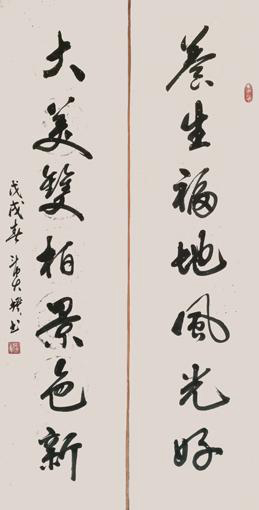 養生福地風光好
大美雙柏景色新
戊戌春